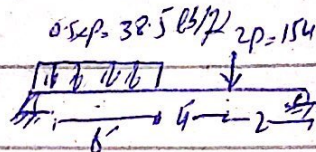 0.5×P= 38.5 lb/ft 2P=154
5 4 2